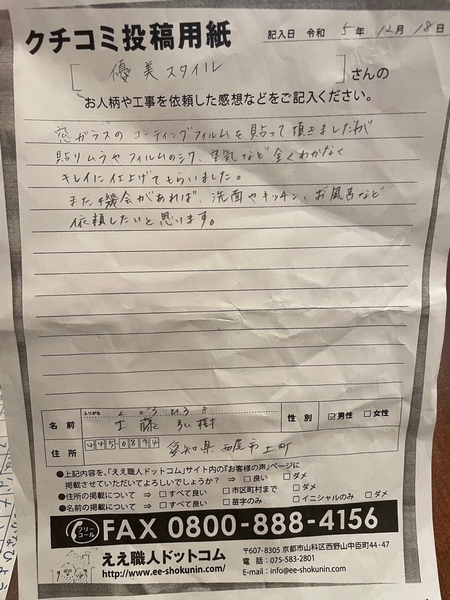 クチコミ投稿用紙
記入日 令和 5年 12月 18日
[優美スタイル]さんの
お人柄や工事を依頼した感想などをご記入ください。
窓ガラスのコーティングフィルムを貼って頂きましたが
貼りムラやフィルムのシワ、空気など全くわかなく
キレイに仕上げてもらいました。
また機会があれば、洗面やキッチン、お風呂など
依頼したいと思います。
ふりがな くどうひろき
名前 工藤弘樹 性別 ☑男性 □女性
住所 4450894 愛知県西尾市上町
●上記内容を、「ええ職人ドットコム」サイト内の『お客様の声』ページに
掲載させていただいてよろしいでしょうか? ⇒ □良い □ダメ
●住所の掲載について ⇒ □すべて良い □市区町村まで □ダメ
●名前の掲載について ⇒ □すべて良い □苗字のみ □イニシャルのみ □ダメ
フリーコール FAX 0800-888-4156
ええ職人ドットコム
http://www.ee-shokunin.com/
〒607-8305 京都市山科区西野山中臣町44-47
電話:075-583-2801
E-mail:info@ee-shokunin.com